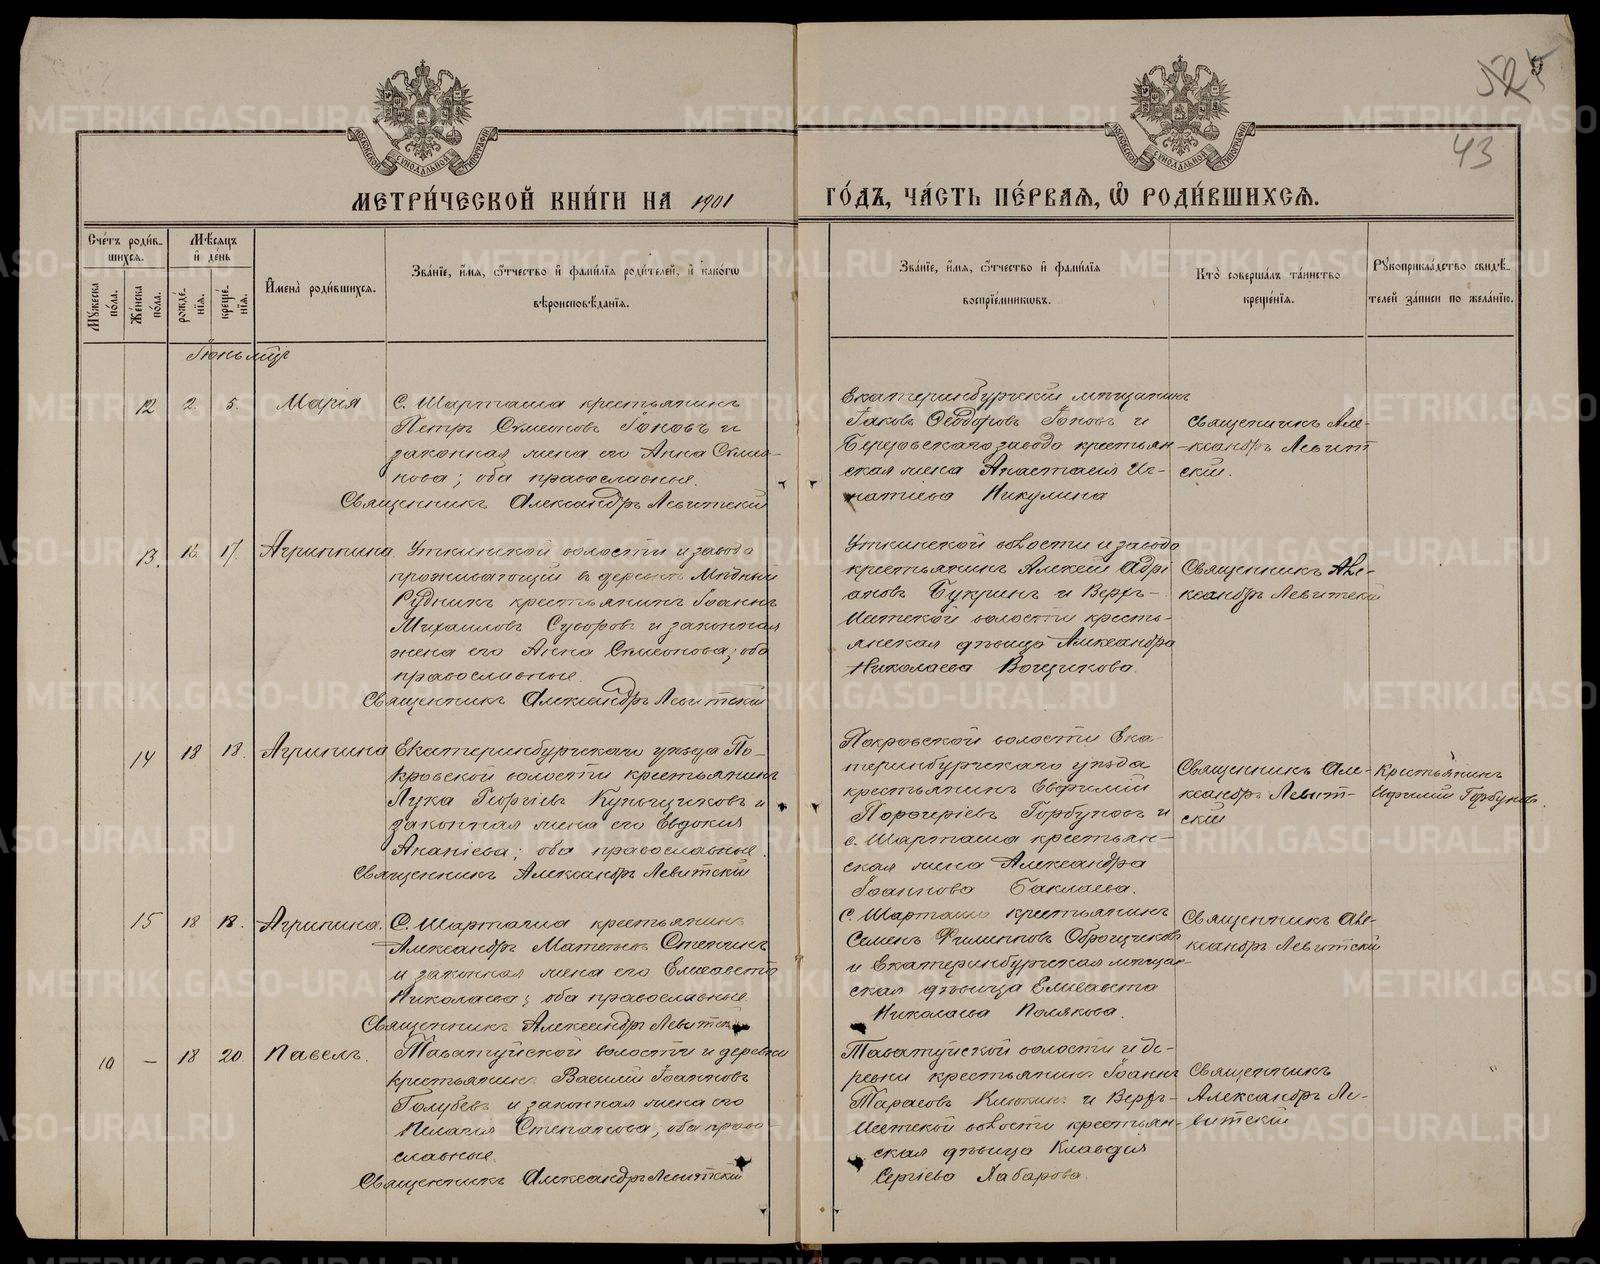 525
43
МЕТРИ́ЧЕСКОЙ КНИ́ГИ НА 1901 ГО́ДЪ, ЧА́СТЬ ПЕ́РВАЯ, Ѽ РОДИ́ВШИХСЯ.
Сче́тъ роди́в-
шихся.
Му́жеска по́ла.
Же́нска по́ла.
Мѣ́сяцъ
и҆ де́нь
рожде́-
нїя.
креще́-
нїя.
И҆мена̀ роди́вшихся.
Зва́нїе, и҆́мя, ѻ҆́тчество и҆ фами́лїя роди́телей, и҆ како́гѡ
вѣроисповѣ́данїя.
Зва́нїе, и҆́мя, ѻ҆́тчество и҆ фами́лїя
воспрїе́мниковъ.
Кто̀ соверша́лъ та́инство
креще́нїя.
Рꙋкоприкла́дство свидѣ́-
телей за́писи по жела́нїю.
Іюнь мцъ
12 2. 5. Марія
С. Шарташа крестьянинъ
Петръ Симеоновъ Іоновъ и
законная жена его Анна Симео-
нова; оба православные.
Священникъ Александръ Левитскій
Екатеринбургскій мѣщанинъ
Іаковъ Ѳеодоровъ Іоновъ и
Березовскаго завода крестьян
ская жена Анастасія Иг-
натіева Никулина
Священникъ Але-
ксандръ Левит
скій.
13. 16. 17. Агриппина
Уткинской волости и завода
проживающій въ деревнѣ Мѣдный
Рудникъ крестьянинъ Іоаннъ
Михаиловъ Суворовъ и законная
жена его Анна Симеонова; оба
православные.
Священникъ Александръ Левитскій
Уткинской волости и завода
крестьянинъ Алексій Адрі
ановъ Букринъ и Верхъ-
Исетской волости кресть-
янская дѣвица Александра
Николаева Вощикова.
Священникъ Але-
ксандръ Левитскій
14 18 18. Агрипина
Екатеринбургскаго уѣзда По-
кровской волости крестьянинъ
Лука Георгіевъ Купыщиковъ и
законная жена его Евдокия
Ананіева; оба православные.
Священникъ Александръ Левитскій
Покровской волости Ека
теринбургскаго уѣзда
крестьянинъ Евфимій
Порфиріевъ Горбуновъ и
с. Шарташа крестьян-
ская жена Александра
Іоаннова Баклаева.
Священникъ Але-
ксандръ Левит-
скій
Крестьянинъ
Евфимій Горбуновъ.
15 18 18. Агрипина.
С. Шарташа крестьянинъ
Александръ Матвѣевъ Степинъ
и законная жена его Елисавета
Николаева; оба православные.
Священникъ Александръ Левитскій
С. Шарташа крестьянинъ
Семенъ Филипповъ Оброщиковъ
и Екатеринбургская мѣщан-
ская дѣвица Елисавета
Николаева Полякова.
Священникъ Але-
ксандръ Левитскій
10 – 18 20. Павелъ.
Таватуйской волости и деревни
крестьянинъ Василій Іоанновъ
Голубевъ и законная жена его
Пелагія Степанова; оба право-
славные.
Священникъ Александръ Левитскій
Таватуйской волости и де-
ревни крестьянинъ Іоаннъ
Тарасовъ Клюкинъ и Верхъ-
Исетской волости крестьян-
ская дѣвица Клавдія
Сергіева Хабарова.
Священникъ
Александръ Ле-
витскій